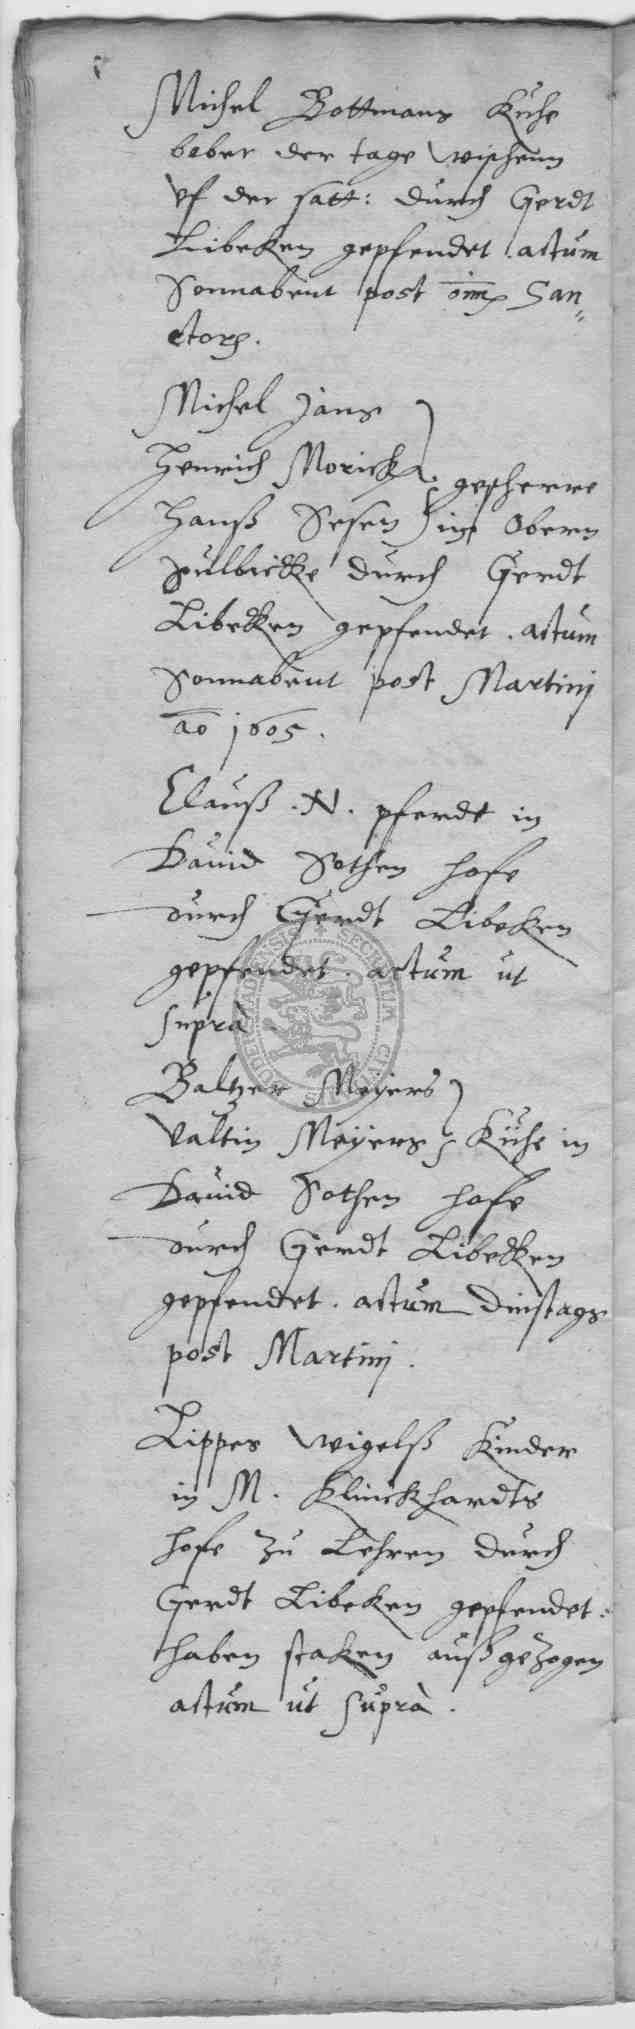 Michel Bottmans Kühe
bober der tage wischenn
Vf der satt: durch Gerdt
Libeken gepfendet actum
Sonnabent post om̄ San„
ctorꝫ.
Michel Jans
Henrich Morick
gescherre
Hanß Sesen im Obern
pulbicke durch Gerdt
Libecken gepfendet. actum
Sonnabent post Martinj
ao 1605.
Clauß .N. pferdt in
Dauid Sothen hofe
durch Gerdt Libeken
gepfendet. actum ut
suprà
Baltzer Meyers
Valtin Meÿers Kühe in
Dauid Sothen hofe
durch Gerdt Libecken
gepfendet. actum Dinstags
post Martinj.
Lippes Wigelß Kinder
in M. Klinckhardts
hofe zu Lehren durch
Gerdt Libeken gepfendet.
haben staken außgezogen
actum ut suprà.